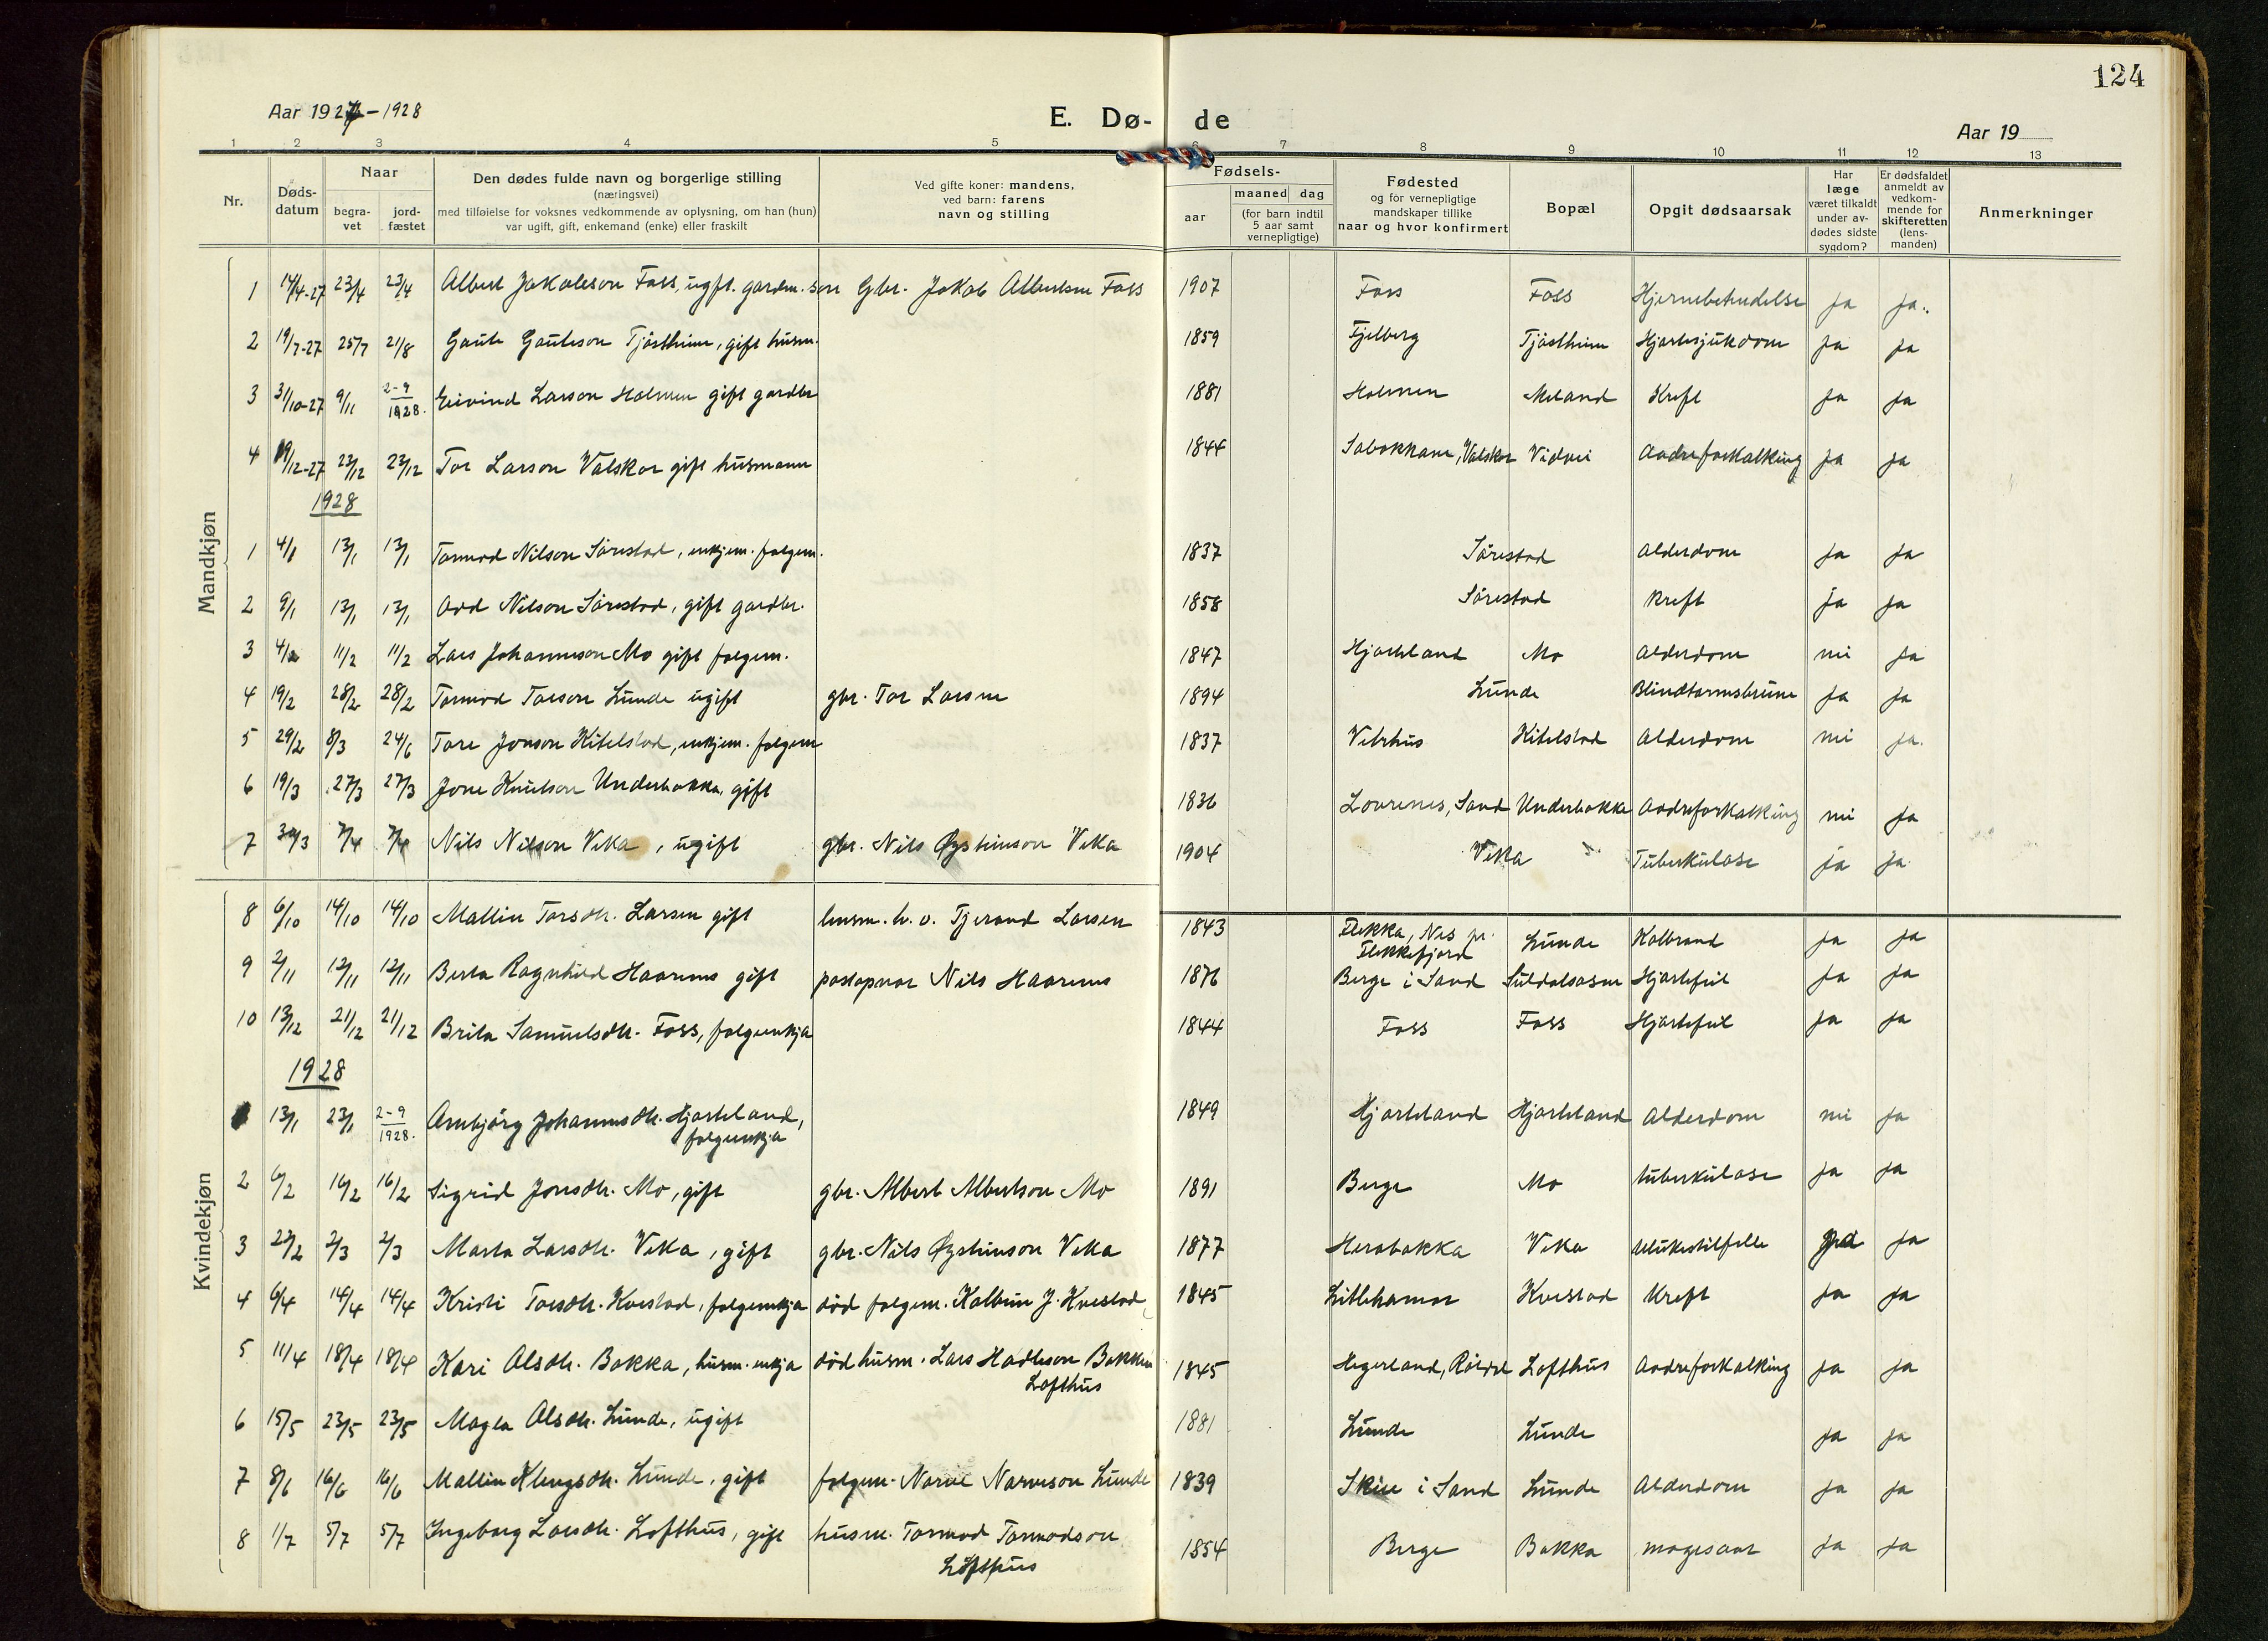 124
Aar 1927 - 1928
E. Dø- de
Aar 19
1 2 3 4 5 6 7 8 9 10 11 12 13
Nr.
Døds-
datum
Naar
begra-
vet
jord-
fæstet
Den dødes fulde navn og borgerlige stilling
(næringsvei)
med tilføielse for voksnes vedkommende av oplysning, om han (hun)
var ugift, gift, enkemand (enke) eller fraskilt
Ved gifte koner: mandens,
ved barn: farens
navn og stilling
Fødsels-
aar
maaned dag
(for barn indtil
5 aar samt
vernepligtige)
Fødested
og for vernepligtige
mandskaper tillike
naar og hvor konfirmert
Bopæl
Opgit dødsaarsak
Har
læge
været tilkaldt
under av-
dødes sidste
sygdom?
Er dødsfaldet
anmeldt av
vedkom-
mende for
skifteretten
(lens-
manden)
Anmerkninger
Mandkjøn
1 14/4-27 23/4 23/4 Albert Jakobson Foss, ugift. gardm. son Gbr. Jakob Albertson Foss 1907 Foss Foss Hjernebetendelse ja ja.
2 19/7-27 25/7 21/8 Gaute Gauteson Tjøstheim, gift husm. 1859 Fjelberg Tjøstheim Hjartesjukdom ja ja
3 31/10-27 9/11 2-9 1928. Eivind Larson Holmen gift gardbr 1881 Holmen Meland Kreft ja ja
4 19/12-27 23/12 23/12 Tor Larson Valskor gift husmann 1844 Valskor Vidvei Aadreforkalking ja ja
1928
1 4/1 13/1 13/1 Tormod Nilson Sørestad, enkjem. folgem. 1837 Sørestad Alderdom ja ja
2 9/1 13/1 13/1 Odd Nilson Sørestad, gift gardbr. 1858 Sørestad Kreft ja ja
3 4/2 11/2 11/2 Lars Johannesson Mo gift folgem. 1847 Hjorteland Mo Alderdom nei ja
4 19/2 28/2 28/2 Tormod Torson Lunde ugift gbr. Tor Larson 1894 Lunde Blindtarmsbrune ja ja
5 29/2 8/3 24/6 Tore Jonson Kitelstad, enkjem. folgem 1837 Vetrhus Kitelstad Alderdom nei ja.
6 19/3 27/3 27/3 Jone Knutson Underbakka, gift 1836 Lovrenes, Sand Underbakka Aadreforkalking nei ja
7 30/3 7/4 7/4 Nils Nilson Veka, ugift gbr. Nils Øysteinson Veka 1904 Veka Tuberkulose ja ja
Kvindekjøn
8 6/10 14/10 14/10 Mallin Torsdtr. Larsen gift husm. Tjerand Larsen 1843 Flekka, Nes pr. Flekkefjord Lunde Kolbrand ja ja
9 2/11 12/11 12/11 Berta Ragnhild Haarems gift postopnar Nils Haarems 1876 Berge i Sand Suldalsosen Hjartefeil ja ja
10 13/12 21/12 21/12 Brita Samuelsdtr. Foss, folgeenkja 1844 Foss Foss Hjartefeil ja ja
1928
13/1 23/1 2-9 1928. Arnbjørg Johannesdtr. Hjorteland,
folgeenkja 1849 Hjorteland Hjorteland Alderdom nei ja
2 6/2 16/2 16/2 Sigrid Jonsdtr. Mo, gift gbr. Albert Albertson Mo 1891 Berge Mo tuberkulose ja ja
3 22/2 2/3 2/3 Marta Larsdtr. Veka, gift gbr. Nils Øysteinson Veka 1877 Herabakka Veka ulukestilfelle ja
4 6/4 14/4 14/4 Kristi Torsdtr. Kvestad, folgeenkja død folgem. Kolbein J. Kvestad 1845 Litlehamar Kvestad Kreft ja ja
5 11/4 18/4 18/4 Kari Olsdtr. Bakka, husm. enkja død husm. Lars Hadleson Bakken
Lofthus 1845 Hegerland, Røldal Lofthus Aadreforkalking ja ja
6 15/5 23/5 23/5 Magla Olsdtr. Lunde, ugift 1881 Lunde Lunde ja ja
7 8/6 16/6 16/6 Mallin Klengsdtr. Lunde, gift folgem. Narve Narveson Lunde 1839 Skiee i Sand Lunde Alderdom ja ja
8 1/7 5/7 5/7 Ingeborg Larsdtr. Lofthus, gift husm. Tormod Tormodson
Lofthus 1854 Berge Bakka magesaar ja ja